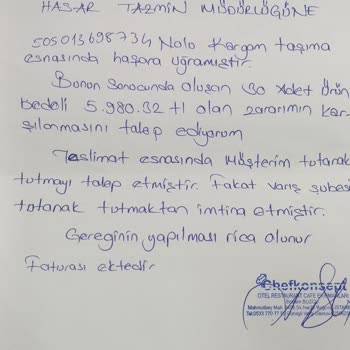 HASAR TAZMİN MÜDÜRLÜĞÜNE
505013698734 Nolo Kargom taşıma
esnasında hasara uğramıştır.
Bonon Sonocunda oluşan 30 Adet Ürün
bedeli 5.980.32 tl olan zararımın kar
şılanmasını talep ediyorum
Teslimat esnasında Müşterim tutanak
tutmayı talep etmiştir. Fakat varış şubesi
totanak tutmaktan imtina etmiştir.
Gereğinin yapılması rica olunur
Faturası ektedir
Chefkonsept
OTEL RESTAURANT CAFE EKİPMANLARI